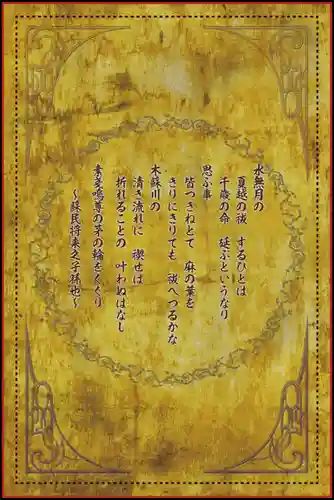 水無月の
夏越の祓 するひとは
千歳の命 延ぶというなり
思ふ事
皆つきねとて 麻の葉を
きりにきりても 祓へつるかな
木蘇川の
清き流れに 禊せば
祈れることの 叶わぬはなし
素戔嗚尊の茅の輪をくぐり
～蘇民将来之子孫也～